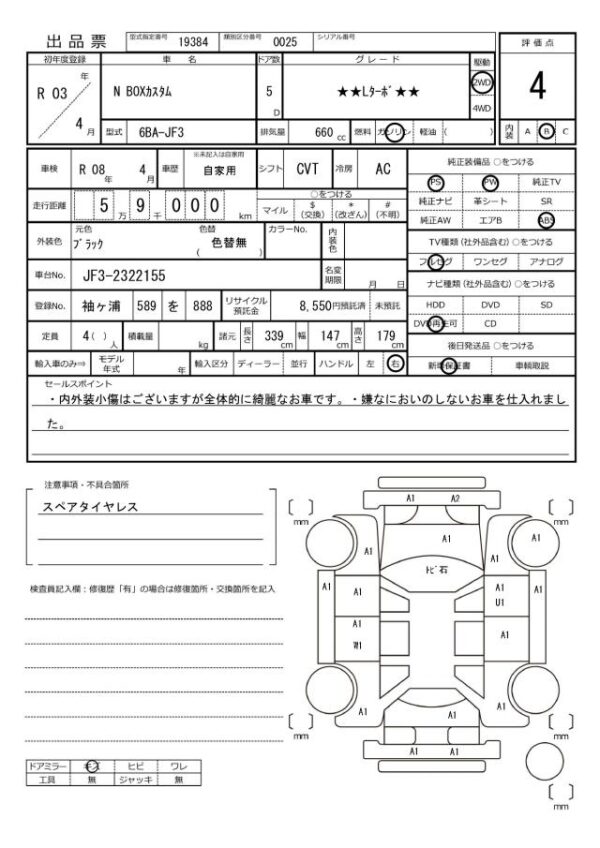 出品票 型式指定番号 19384 類別区分番号 0025 シリアル番号
初年度登録 車名 ドア数 グレード 駆動 評価点
R 03 年 4 月 N BOXカスタム 5 D ★★Lターボ★★ 2WD 4WD 4
型式 6BA-JF3 排気量 660 cc 燃料 ガソリン 軽油 ( ) 内装 A B C
車検 R 08 年 4 月 車歴 ※未記入は自家用 自家用 シフト CVT 冷房 AC 純正装備品 ○をつける
PS PW 純正TV
走行距離 5 万 9 千 0 0 0 km ○をつける マイル $ (交換) * (改ざん) # (不明) 純正ナビ 革シート SR
純正AW エアB ABS
外装色 元色 ブラック 色替 色替無 ( ) カラーNo. 内装色 TV種類 (社外品含む) ○をつける
フルセグ ワンセグ アナログ
車台No. JF3-2322155 名変期限 月 日 ナビ種類 (社外品含む) ○をつける
登録No. 袖ヶ浦 589 を 888 リサイクル預託金 8,550円預託済 未預託 HDD DVD SD
DVD再生可 CD
定員 4 ( ) 人 積載量 kg 諸元 長さ 339 cm 幅 147 cm 高さ 179 cm 後日発送品 ○をつける
輸入車のみ⇒ モデル年式 年 輸入区分 ディーラー 並行 ハンドル 左 右 新車保証書 車輌取説
セールスポイント
・内外装小傷はございますが全体的に綺麗なお車です。・嫌なにおいのしないお車を仕入れまし
た。
注意事項・不具合箇所
スペアタイヤレス
検査員記入欄：修復歴「有」の場合は修復箇所・交換箇所を記入
ドアミラー キズ ヒビ ワレ
工具 無 ジャッキ 無
A1 A2
[ ] mm [ ] mm
A1 A1 A1
トビ石
A1 A1 A1 A1
U1
A1 A1
W1
A1 A1 A1
[ ] mm [ ] mm
A1 A1
[ ] mm